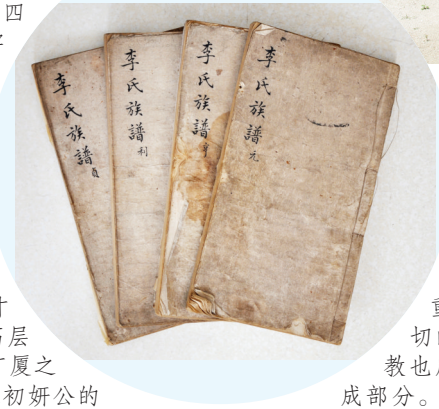 四
李氏族譜 貞
李氏族譜 利
李氏族譜 亨
李氏族譜 元
层
厦之
初妍公的
切
教也
成部分。